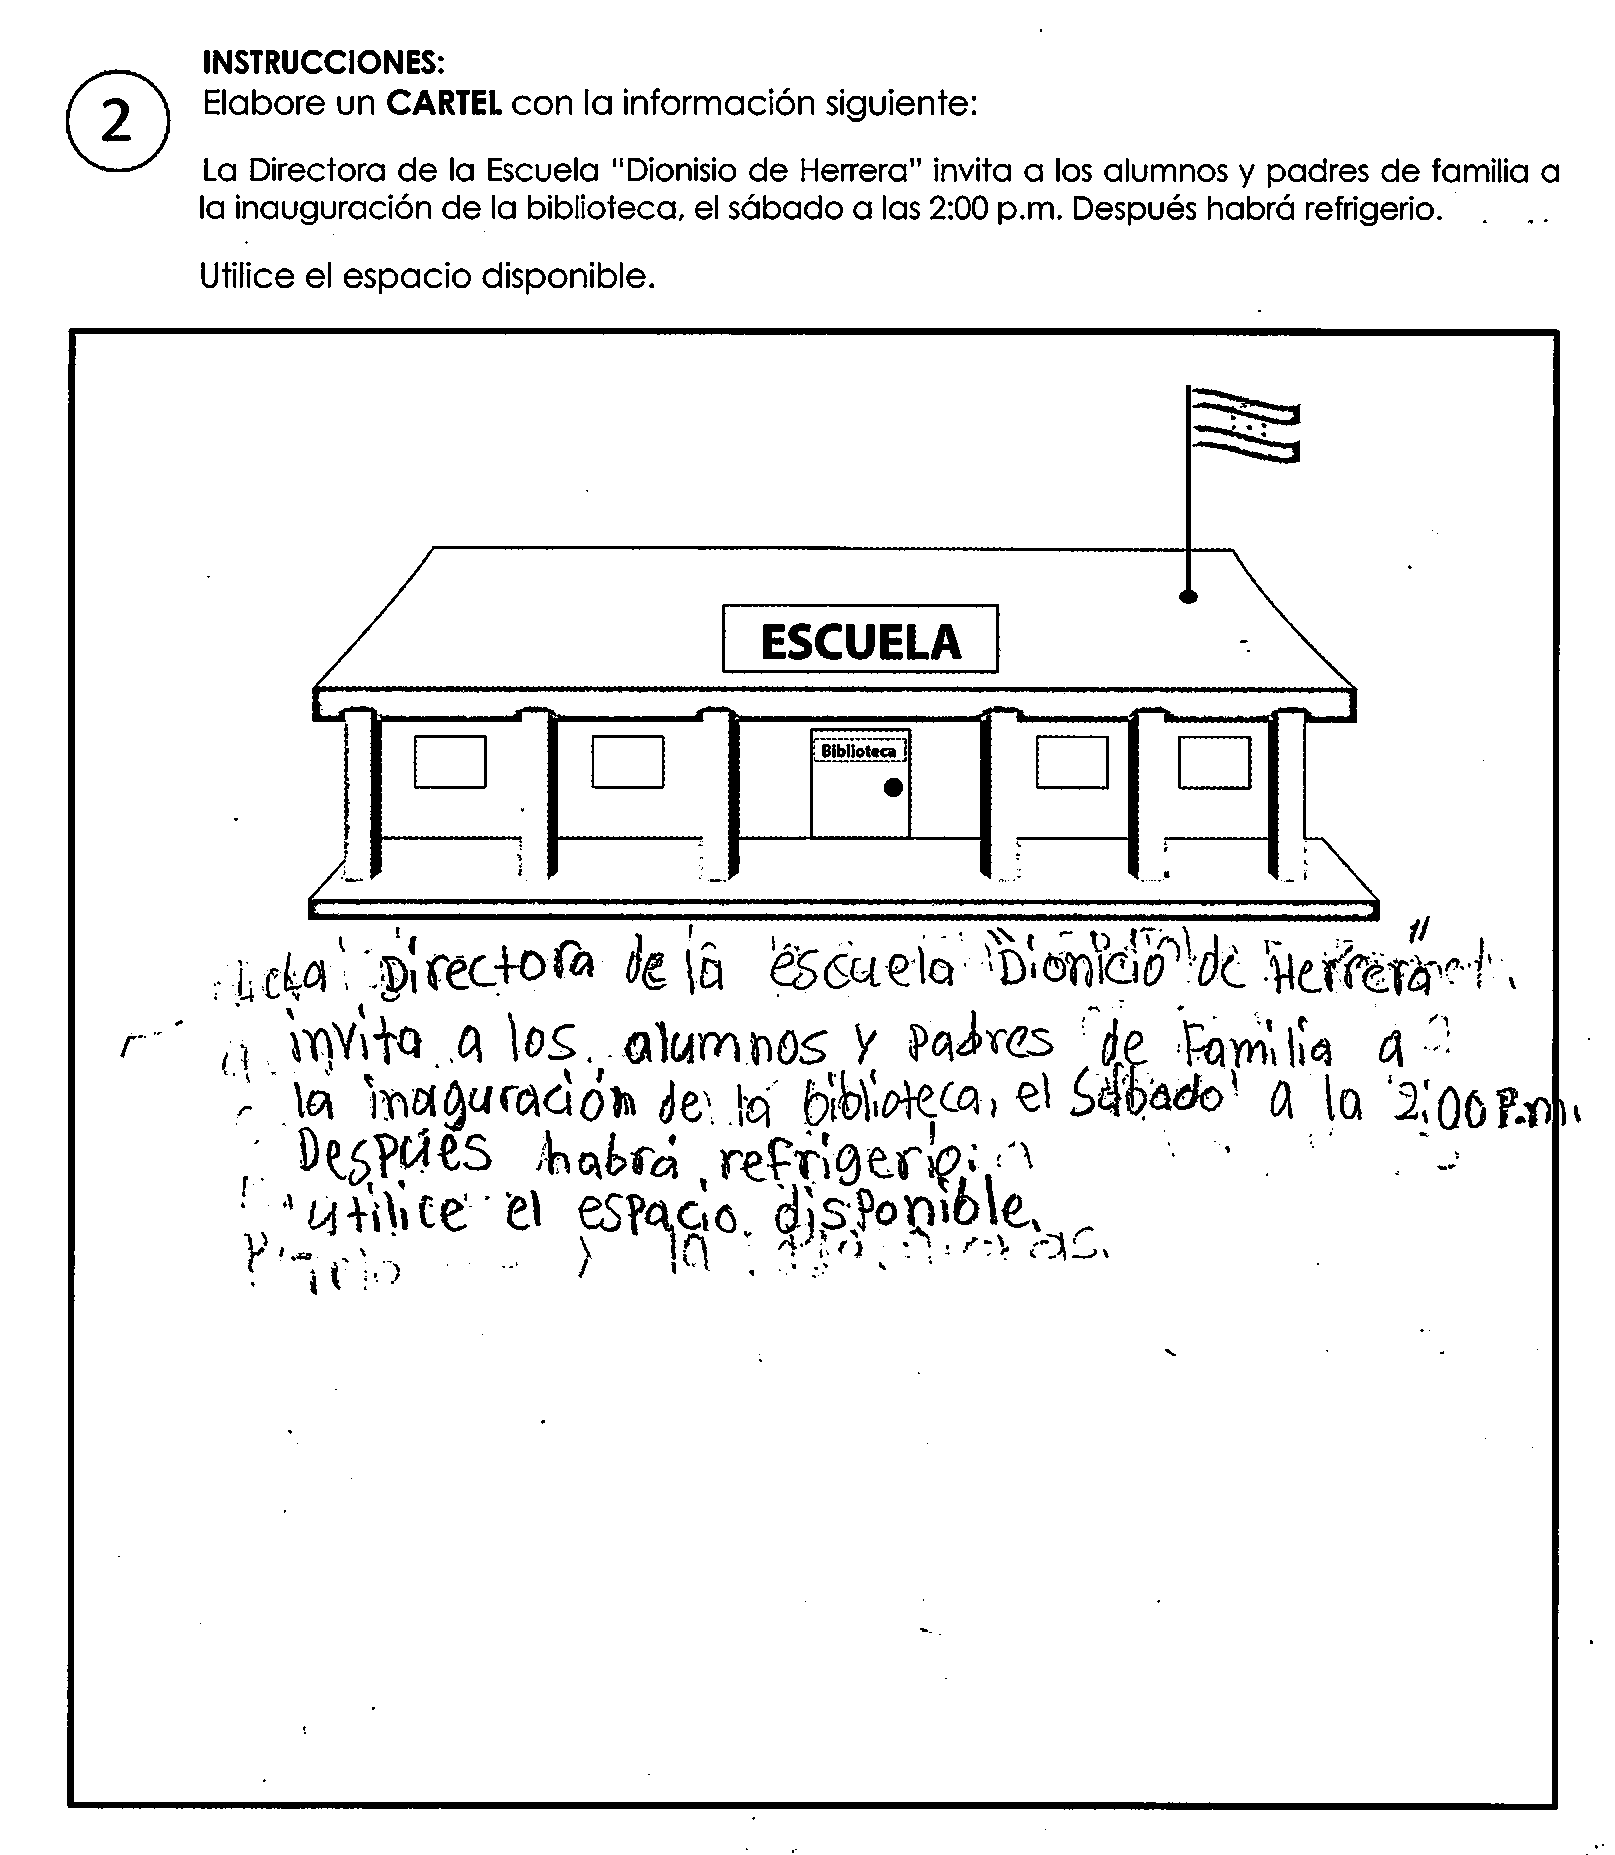 INSTRUCCIONES:
2
Elabore un CARTEL con la información siguiente:
La Directora de la Escuela "Dionisio de Herrera" invita a los alumnos y padres de familia a
la inauguración de la biblioteca, el sábado a las 2:00 p.m. Después habrá refrigerio.
Utilice el espacio disponible.
ESCUELA
Biblioteca
La Directora de la escuela "Dionicio de Herrera"
invita a los alumnos y padres de Familia a
la inaguración de la biblioteca, el Sábado a la 2:00 P.m.
Después habrá refrigerio.
utilice el espacio disponible.